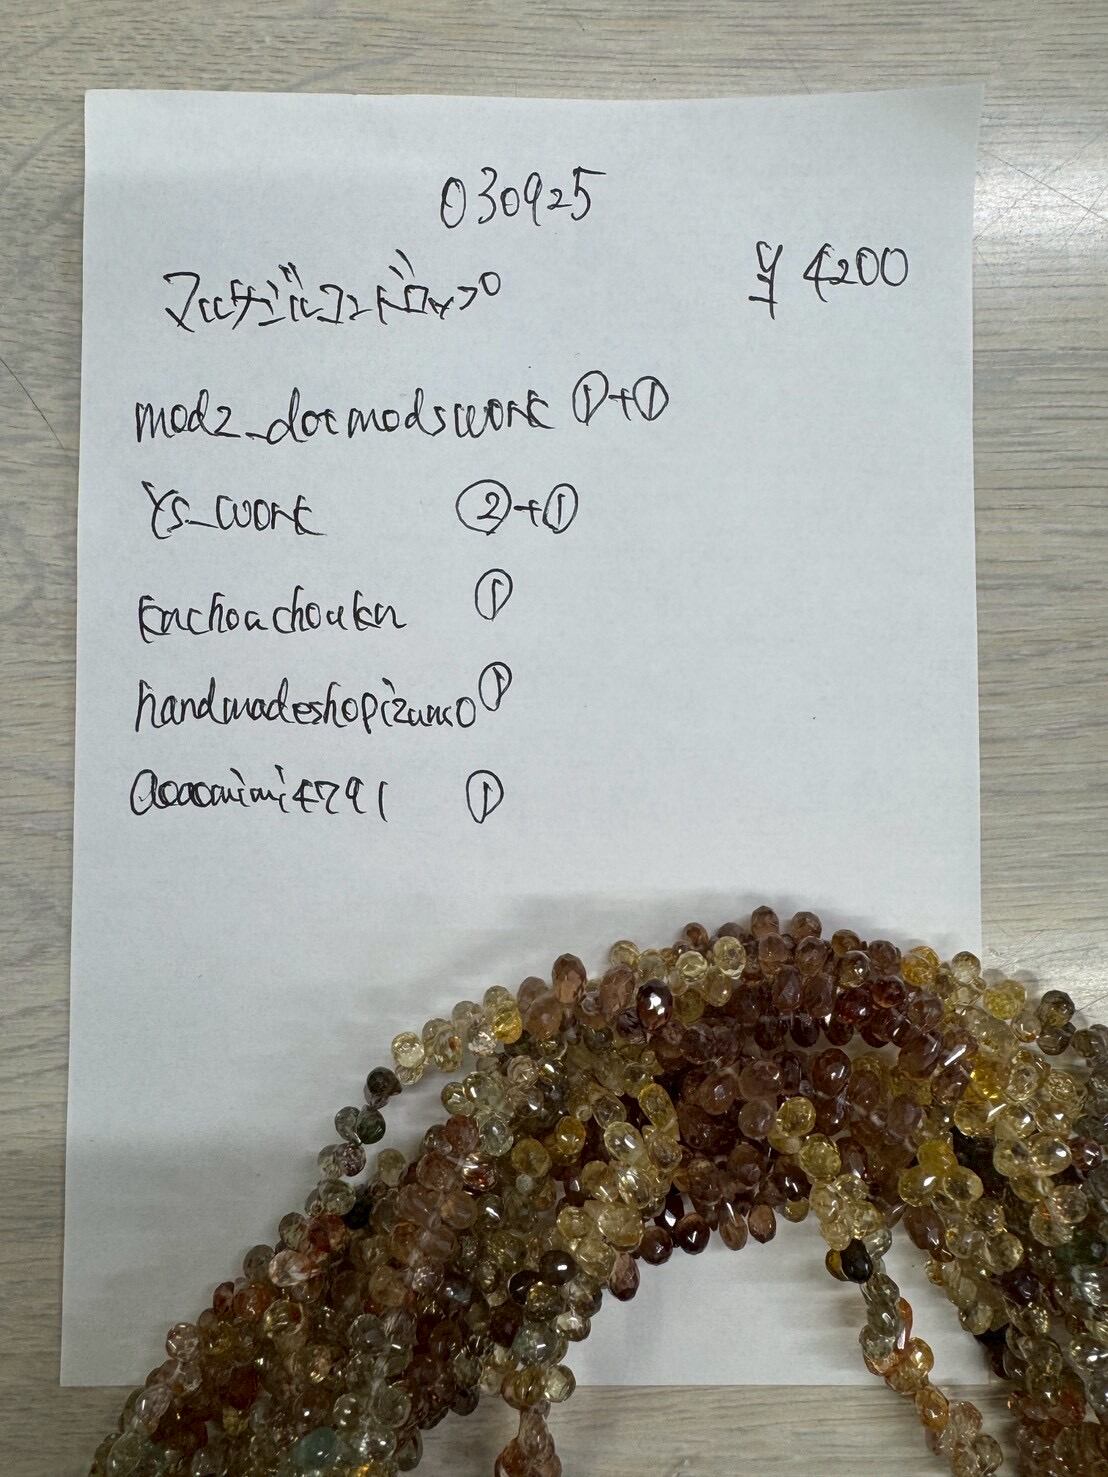 030925
マルチジルコンドロップ
¥4200
mod2_dotmodswork ①+①
Ys_work ②+①
knchoachoukn ①
handmadeshopizumo ①
aoaomimi4791 ①